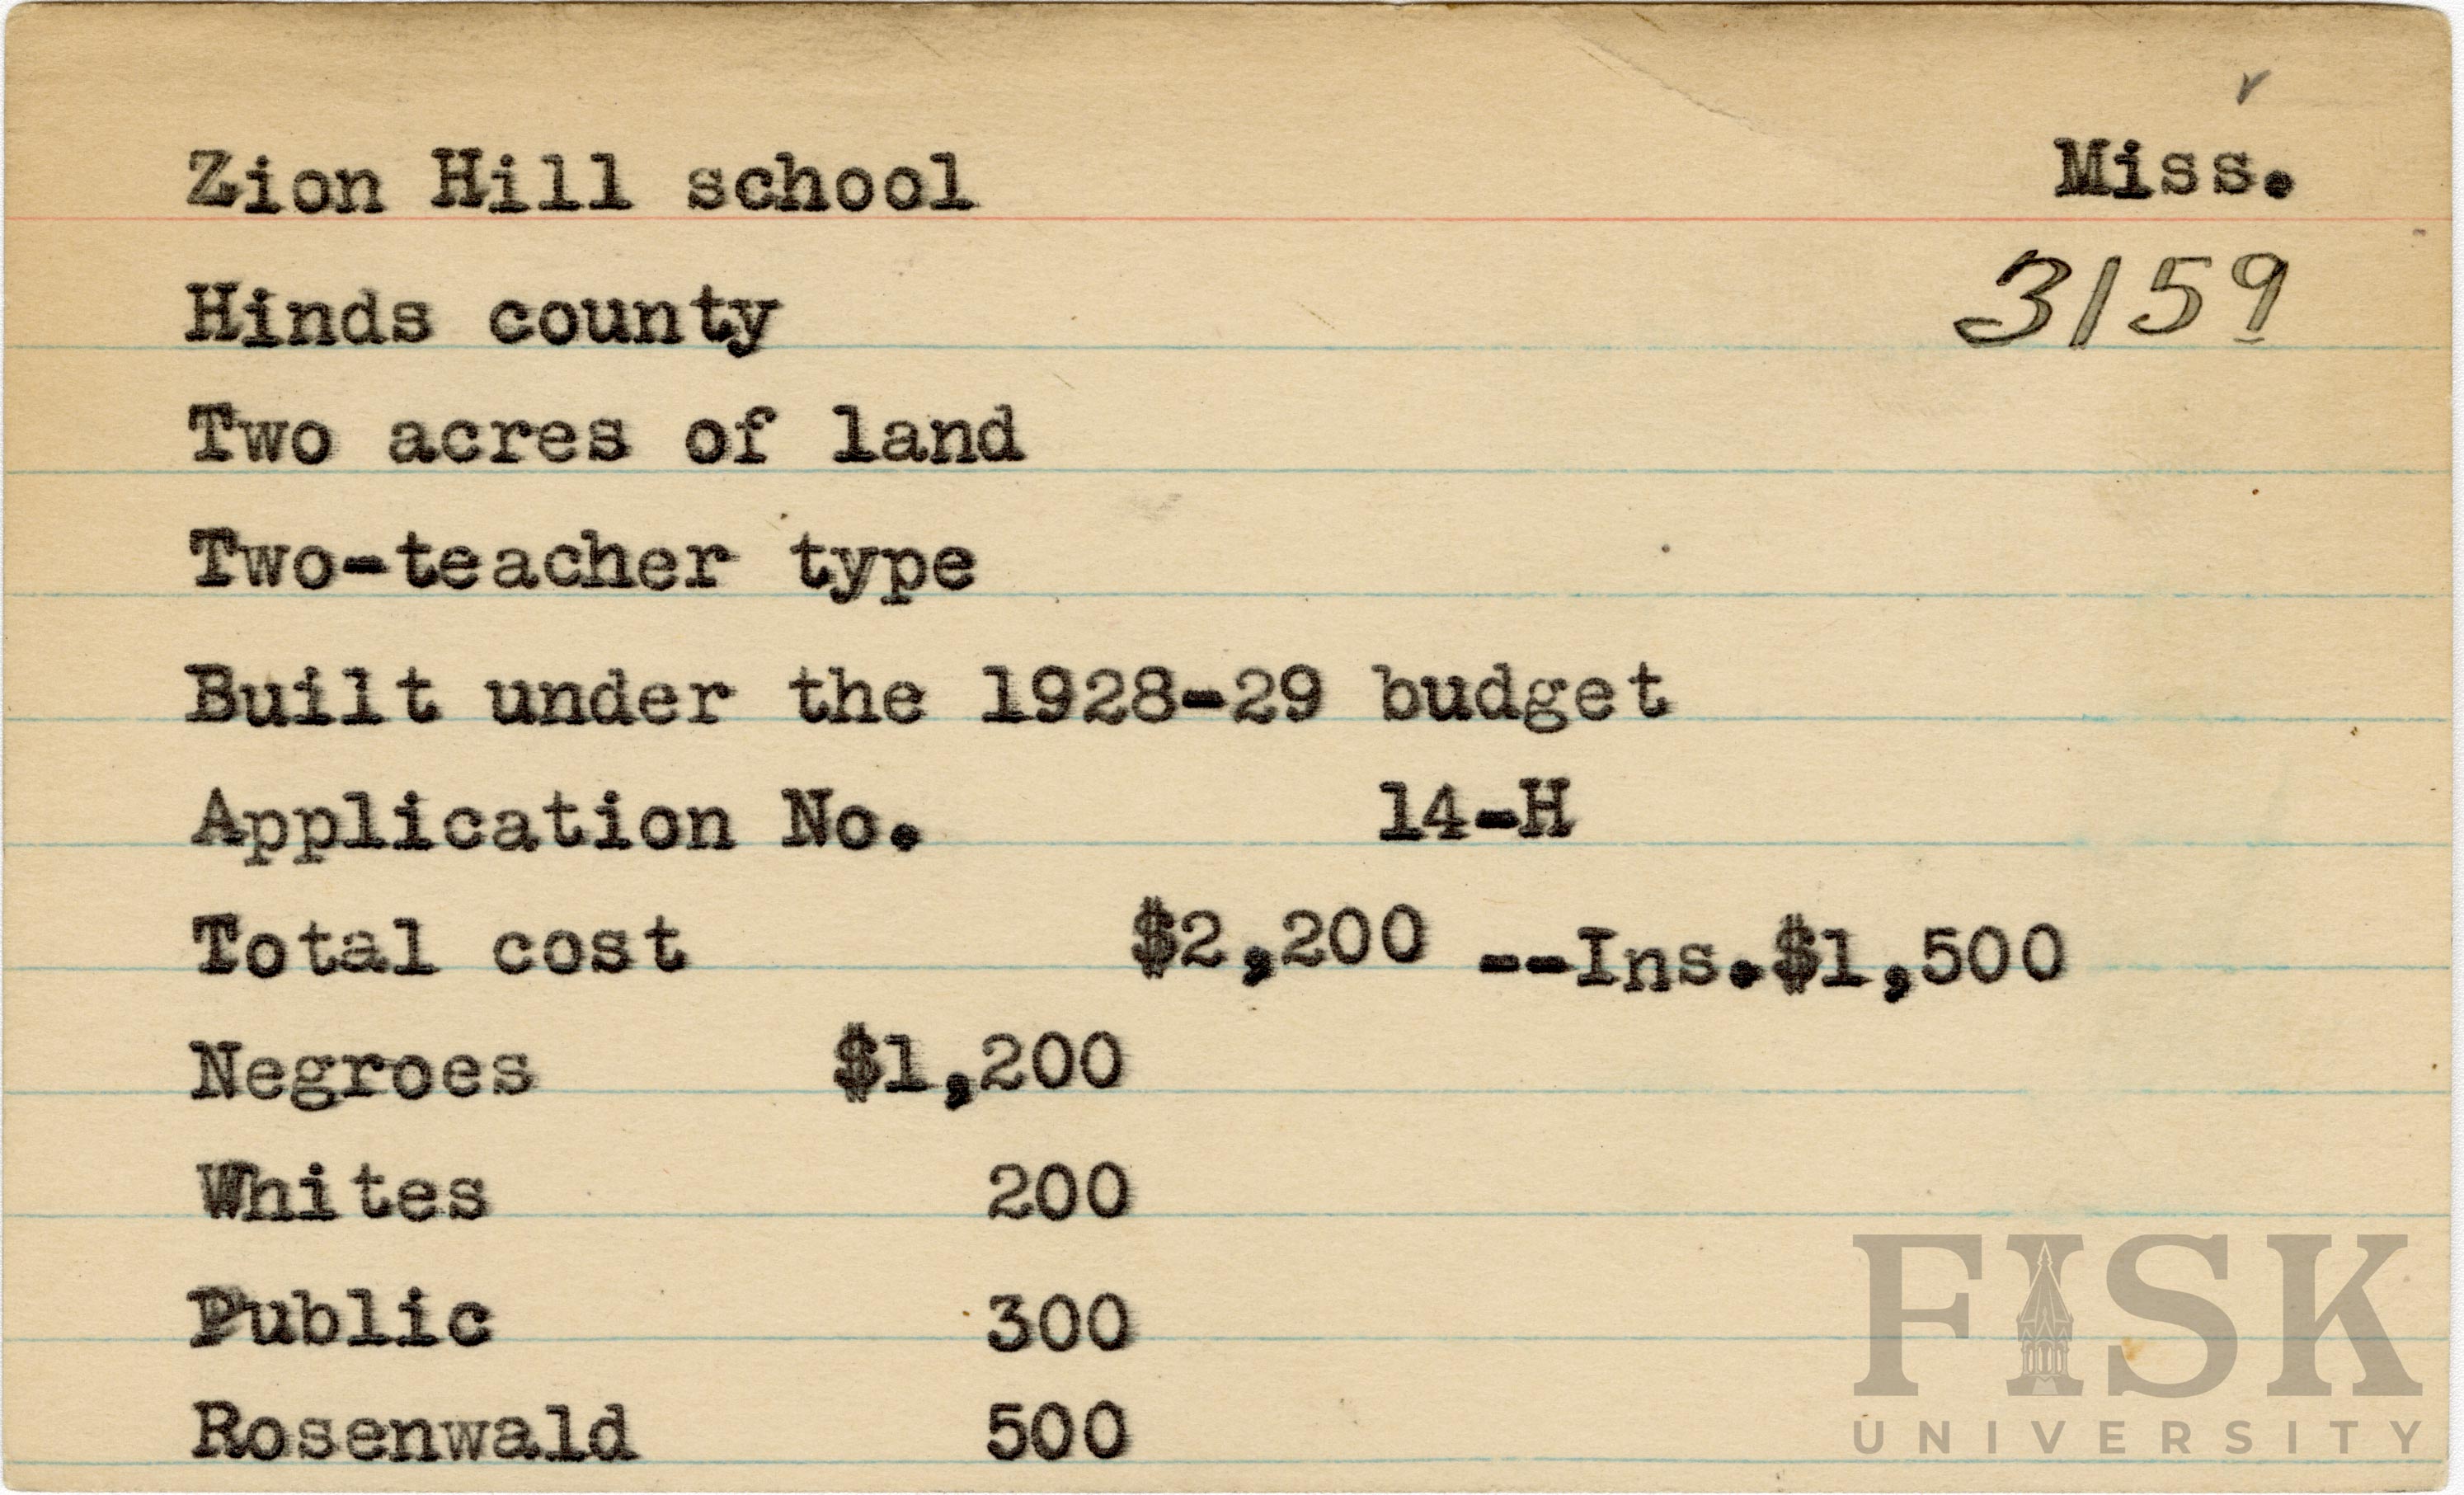 Zion Hill school Miss.
3159
Hinds county
Two acres of land
Two-teacher type
Built under the 1928-29 budget
Application No. 14-H
Total cost $2,200 --Ins.$1,500
Negroes $1,200
Whites 200
Public 300
Rosenwald 500
FISK
UNIVERSITY